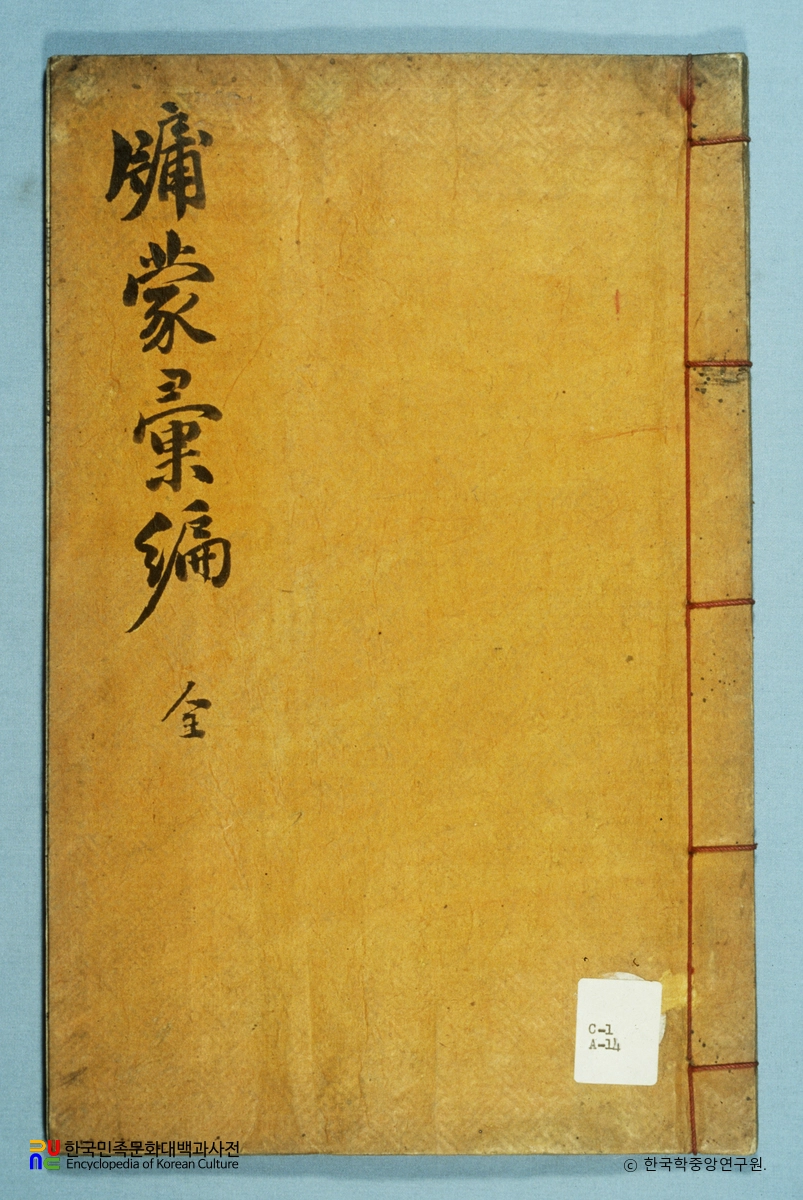 牖蒙彙編
全
C-1
A-14
한국민족문화대백과사전
Encyclopedia of Korean Culture
© 한국학중앙연구원.